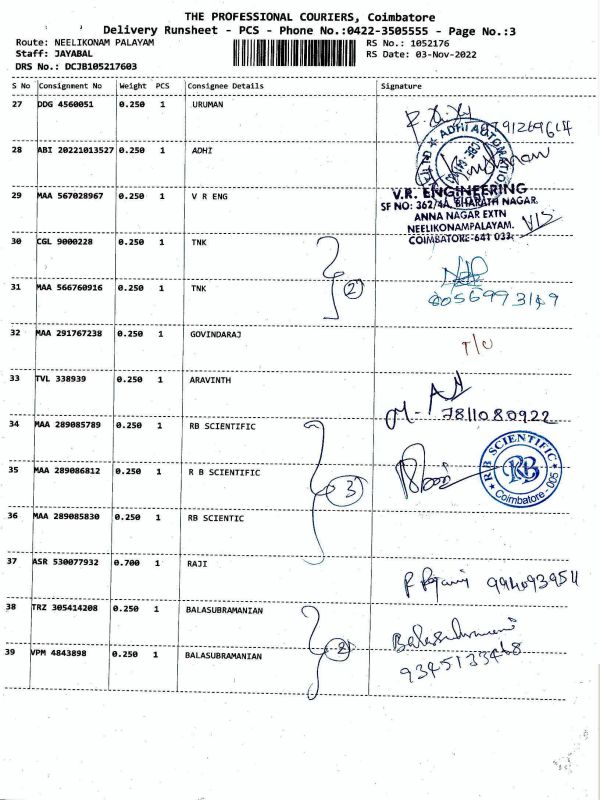 THE PROFESSIONAL COURIERS, Coimbatore
Delivery Runsheet - PCS - Phone No.:0422-3505555 - Page No.:3
Route: NEELIKONAM PALAYAM
RS No.: 1052176
Staff: JAYABAL
RS Date: 03-Nov-2022
DRS No.: DCJB105217603
S No Consignment No Weight PCS Consignee Details Signature
27 DDG 4560051 0.250 1 URUMAN
28 ABI 20221013527 0.250 1 ADHI
ADHI AUTOMATION
29 MAA 567028967 0.250 1 V R ENG
V.R. ENGINEERING
SF NO: 362/4A, BHARATH NAGAR,
ANNA NAGAR EXTN
NEELIKONAMPALAYAM.
COIMBATORE-641 033.
30 CGL 9000228 0.250 1 TNK
2
31 MAA 566760916 0.250 1 TNK
32 MAA 291767238 0.250 1 GOVINDARAJ
33 TVL 338939 0.250 1 ARAVINTH
7811080922
34 MAA 289085789 0.250 1 RB SCIENTIFIC
RB SCIENTIFIC
RB
Coimbatore - 005
35 MAA 289086812 0.250 1 R B SCIENTIFIC
3
36 MAA 289085830 0.250 1 RB SCIENTIC
37 ASR 530077932 0.700 1 RAJI
38 TRZ 305414208 0.250 1 BALASUBRAMANIAN
2
39 VPM 4843898 0.250 1 BALASUBRAMANIAN